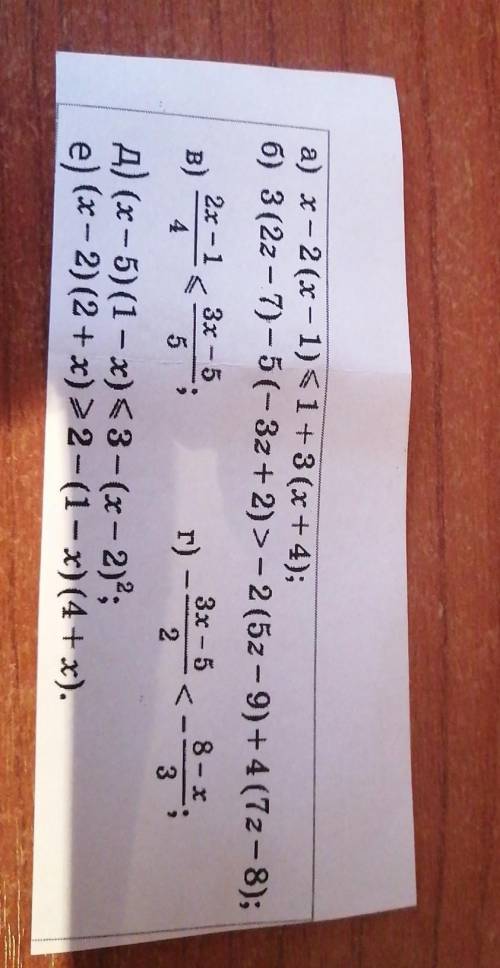 а) x − 2(x − 1) ⩽ 1 + 3(x + 4);
б) 3(2z − 7) − 5(−3z + 2) > −2(5z − 9) + 4(7z − 8);
в) (2x − 1)/4 ⩽ (3x − 5)/5; г) −(3x − 5)/2 < −(8 − x)/3;
д) (x − 5)(1 − x) ⩽ 3 − (x − 2)²;
е) (x − 2)(2 + x) ⩾ 2 − (1 − x)(4 + x).